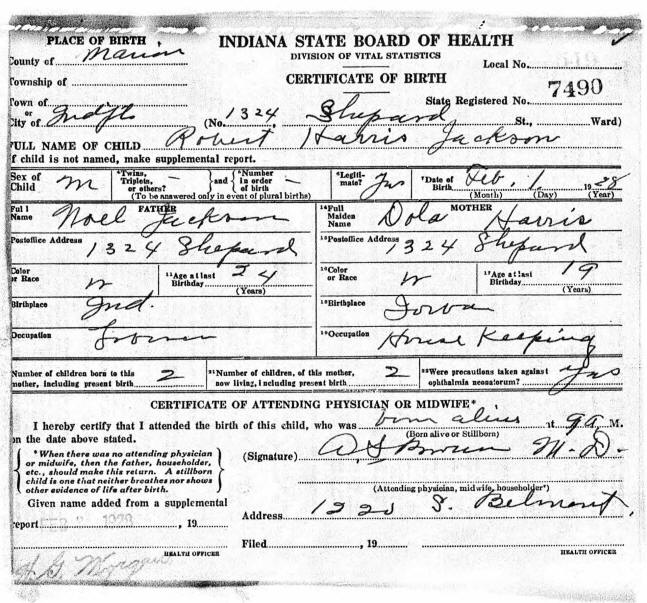 PLACE OF BIRTH
INDIANA STATE BOARD OF HEALTH
DIVISION OF VITAL STATISTICS
CERTIFICATE OF BIRTH
County of Marion
Local No.
Township of
7490
Town of
or
City of Indpls (No. 1324 Shepard St., Ward)
State Registered No.
FULL NAME OF CHILD Robert Harris Jackson
If child is not named, make supplemental report.
Sex of Child M
Twins, Triplets, or others? — and Number in order of birth —
(To be answered only in event of plural births)
Legitimate? Yes
Date of Birth Feb. 1 1928
(Month) (Day) (Year)
FATHER
Full Name Noel Jackson
MOTHER
14 Full Maiden Name Dola Harris
Postoffice Address 1324 Shepard
15 Postoffice Address 1324 Shepard
Color or Race W
11 Age at last Birthday 24 (Years)
16 Color or Race W
17 Age at last Birthday 19 (Years)
Birthplace Ind.
18 Birthplace Iowa
Occupation
19 Occupation House Keeping
Number of children born to this mother, including present birth 2
21 Number of children, of this mother, now living, including present birth 2
22 Were precautions taken against ophthalmia neonatorum? Yes
CERTIFICATE OF ATTENDING PHYSICIAN OR MIDWIFE*
I hereby certify that I attended the birth of this child, who was born alive at 9 a M.
on the date above stated.
(Born alive or Stillborn)
*When there was no attending physician
or midwife, then the father, householder,
etc., should make this return. A stillborn
child is one that neither breathes nor shows
other evidence of life after birth.
(Signature) A. S. Brown M. D.
(Attending physician, midwife, householder*)
Given name added from a supplemental
report , 19
Address 1220 S. Belmont,
Filed , 19
HEALTH OFFICER
HEALTH OFFICER